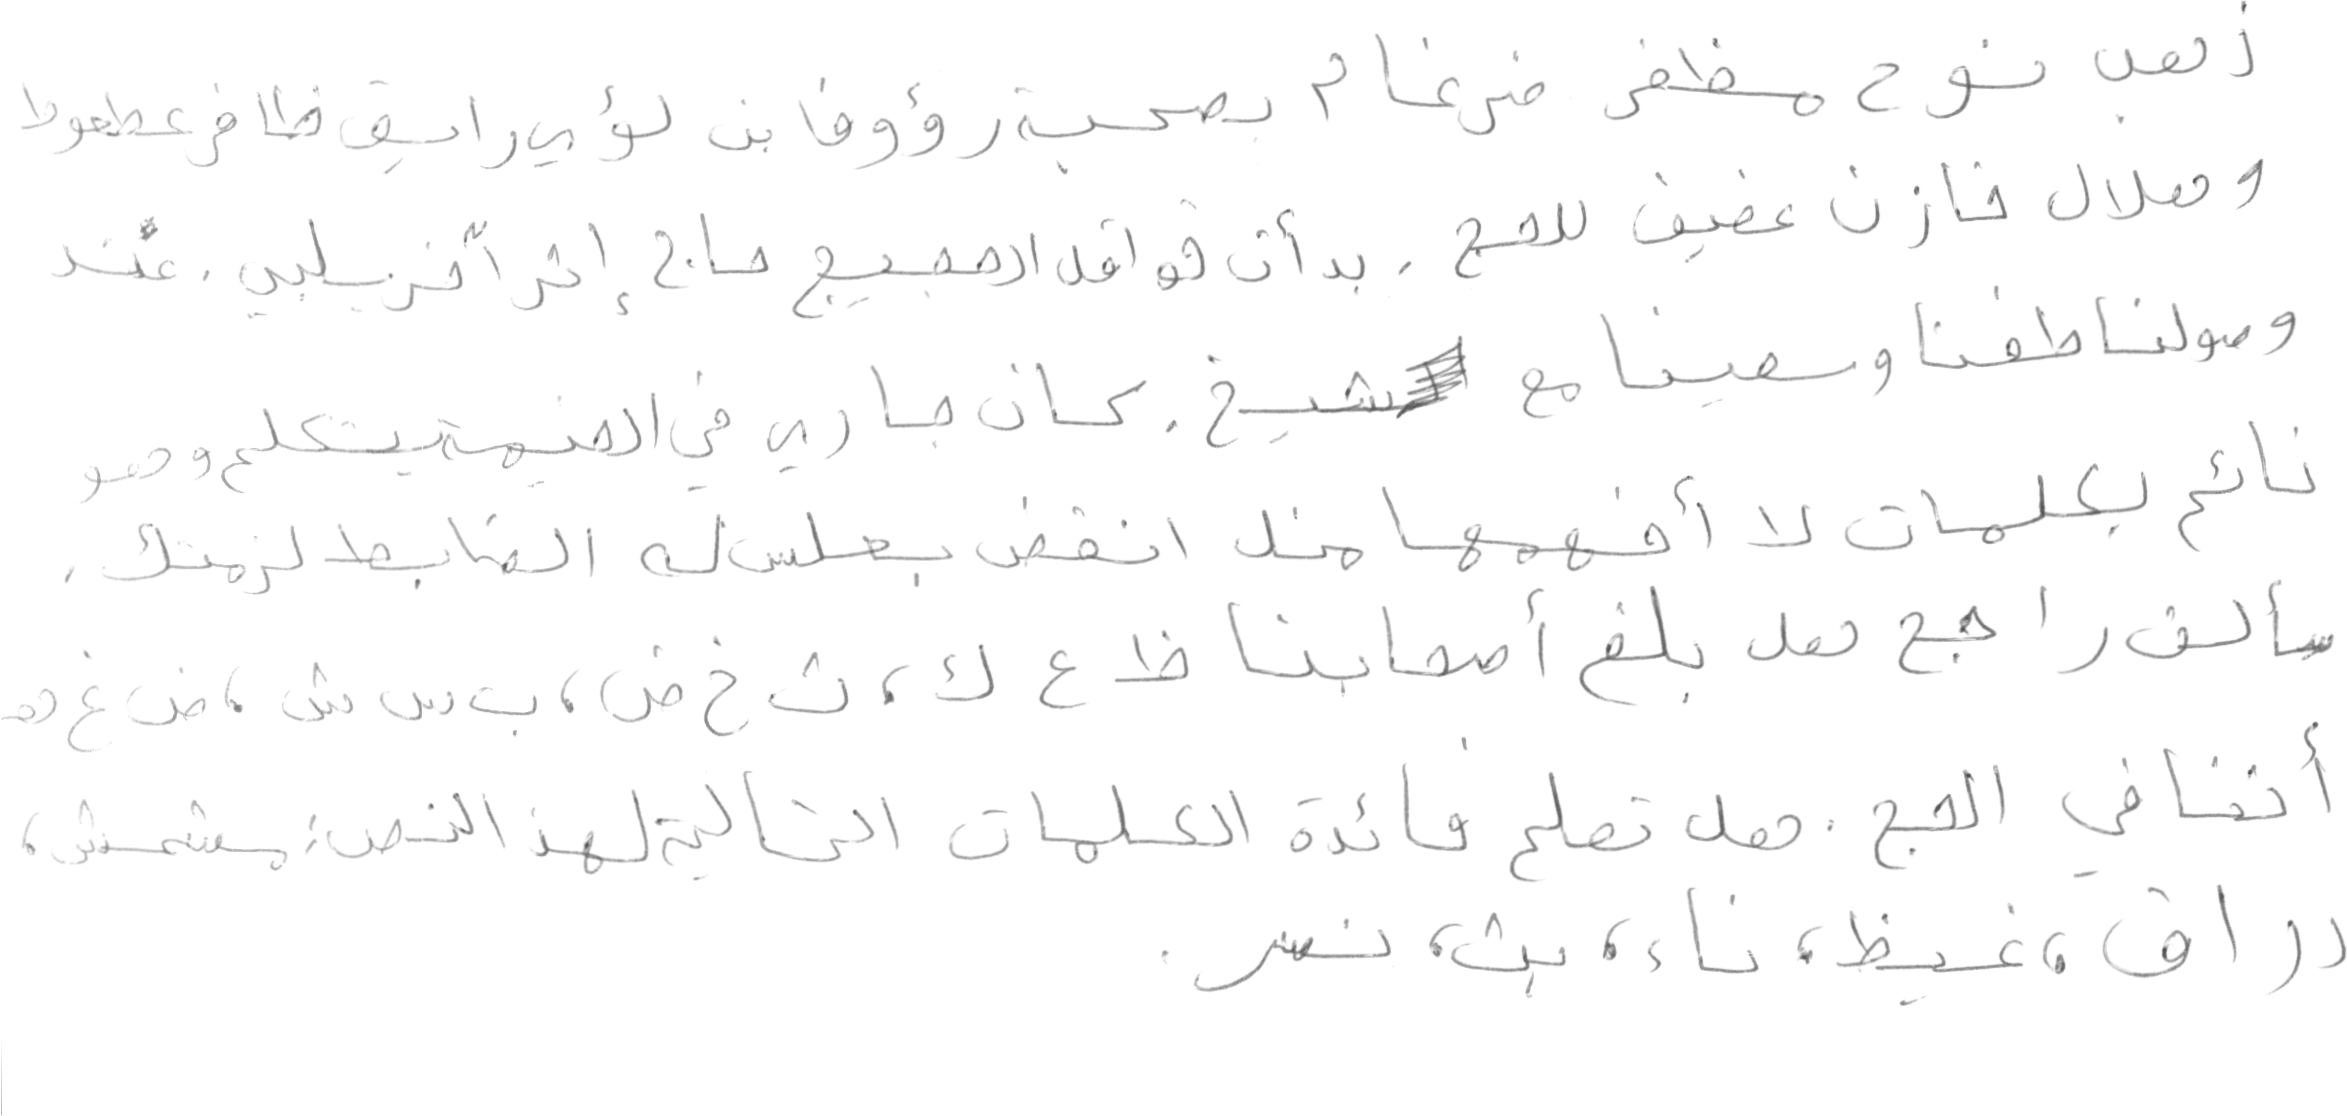 ذهب نوح مظفر ضرغام بصحبة رؤوفا بن لؤي راسق ظافر عطعوط
وهلال خازن عفيف للحج. بدأت قوافل الحجيج حاج إثر آخر يلبي. عند
وصولنا طفنا وسعينا مع شيخ. كان جاري في الخيمة يتكلم وهو
نائم بكلمات لا أفهمها منذ انقض بعلسله الضابط لزمتك.
سألت راجح هل بلغ أصحابنا ظ ع ك، ث خ ض، ب س ش، ض غ ه
أننا في الحج. هل تعلم فائدة الكلمات التالية لهذا النص: مشمش،
دراق، غيظ، ناء، بث، نسر.